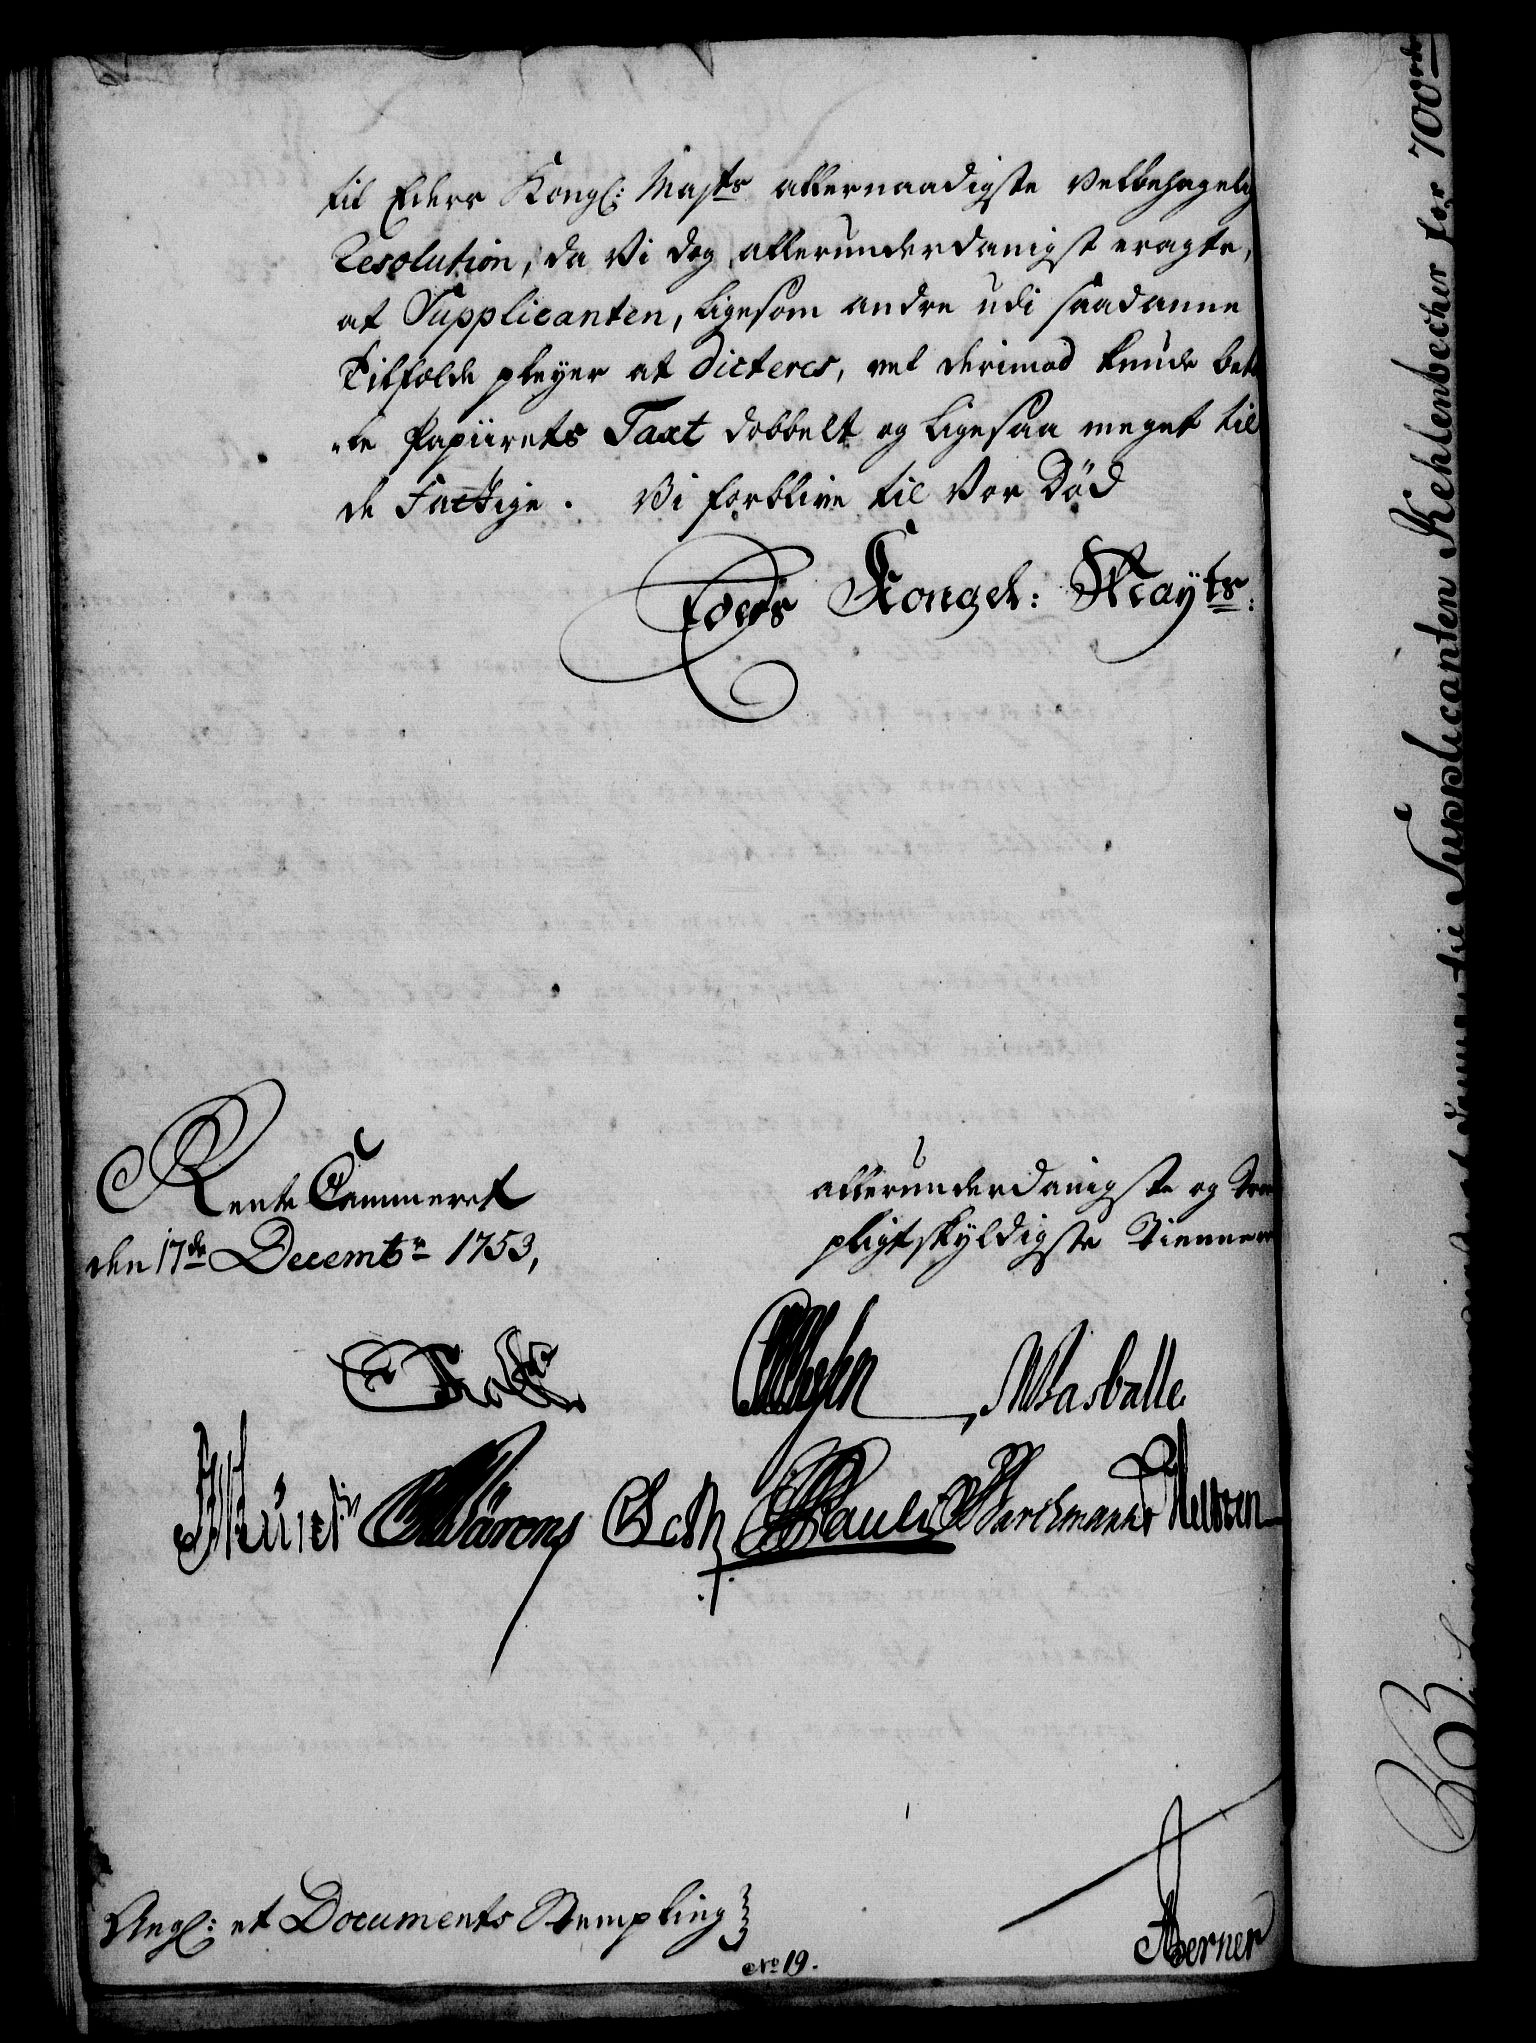 til Eders Kongl: Majts allernaadigste velbehagelig
Resolution, da vi dog allerunderdanigst eragte,
at Supplicanten, ligesom andre udi saadanne
Tilfælde pleyer at dicteres, vel derimod kunde bet
-le Papiirets Taxt dobbelt og ligesaa meget til
de Fattige. Vi forblive til Vor Død
Eders Kongel: Mayts:
Rente Cammeret
den 17de Decembr 1753,
allerunderdanigste og troe
pligtskyldigste Tienner
Wasballe
Pauli
Angl: et Documents Stempling
No 19.
Berner
Supplicanten Kehlenbecher for 700 rd